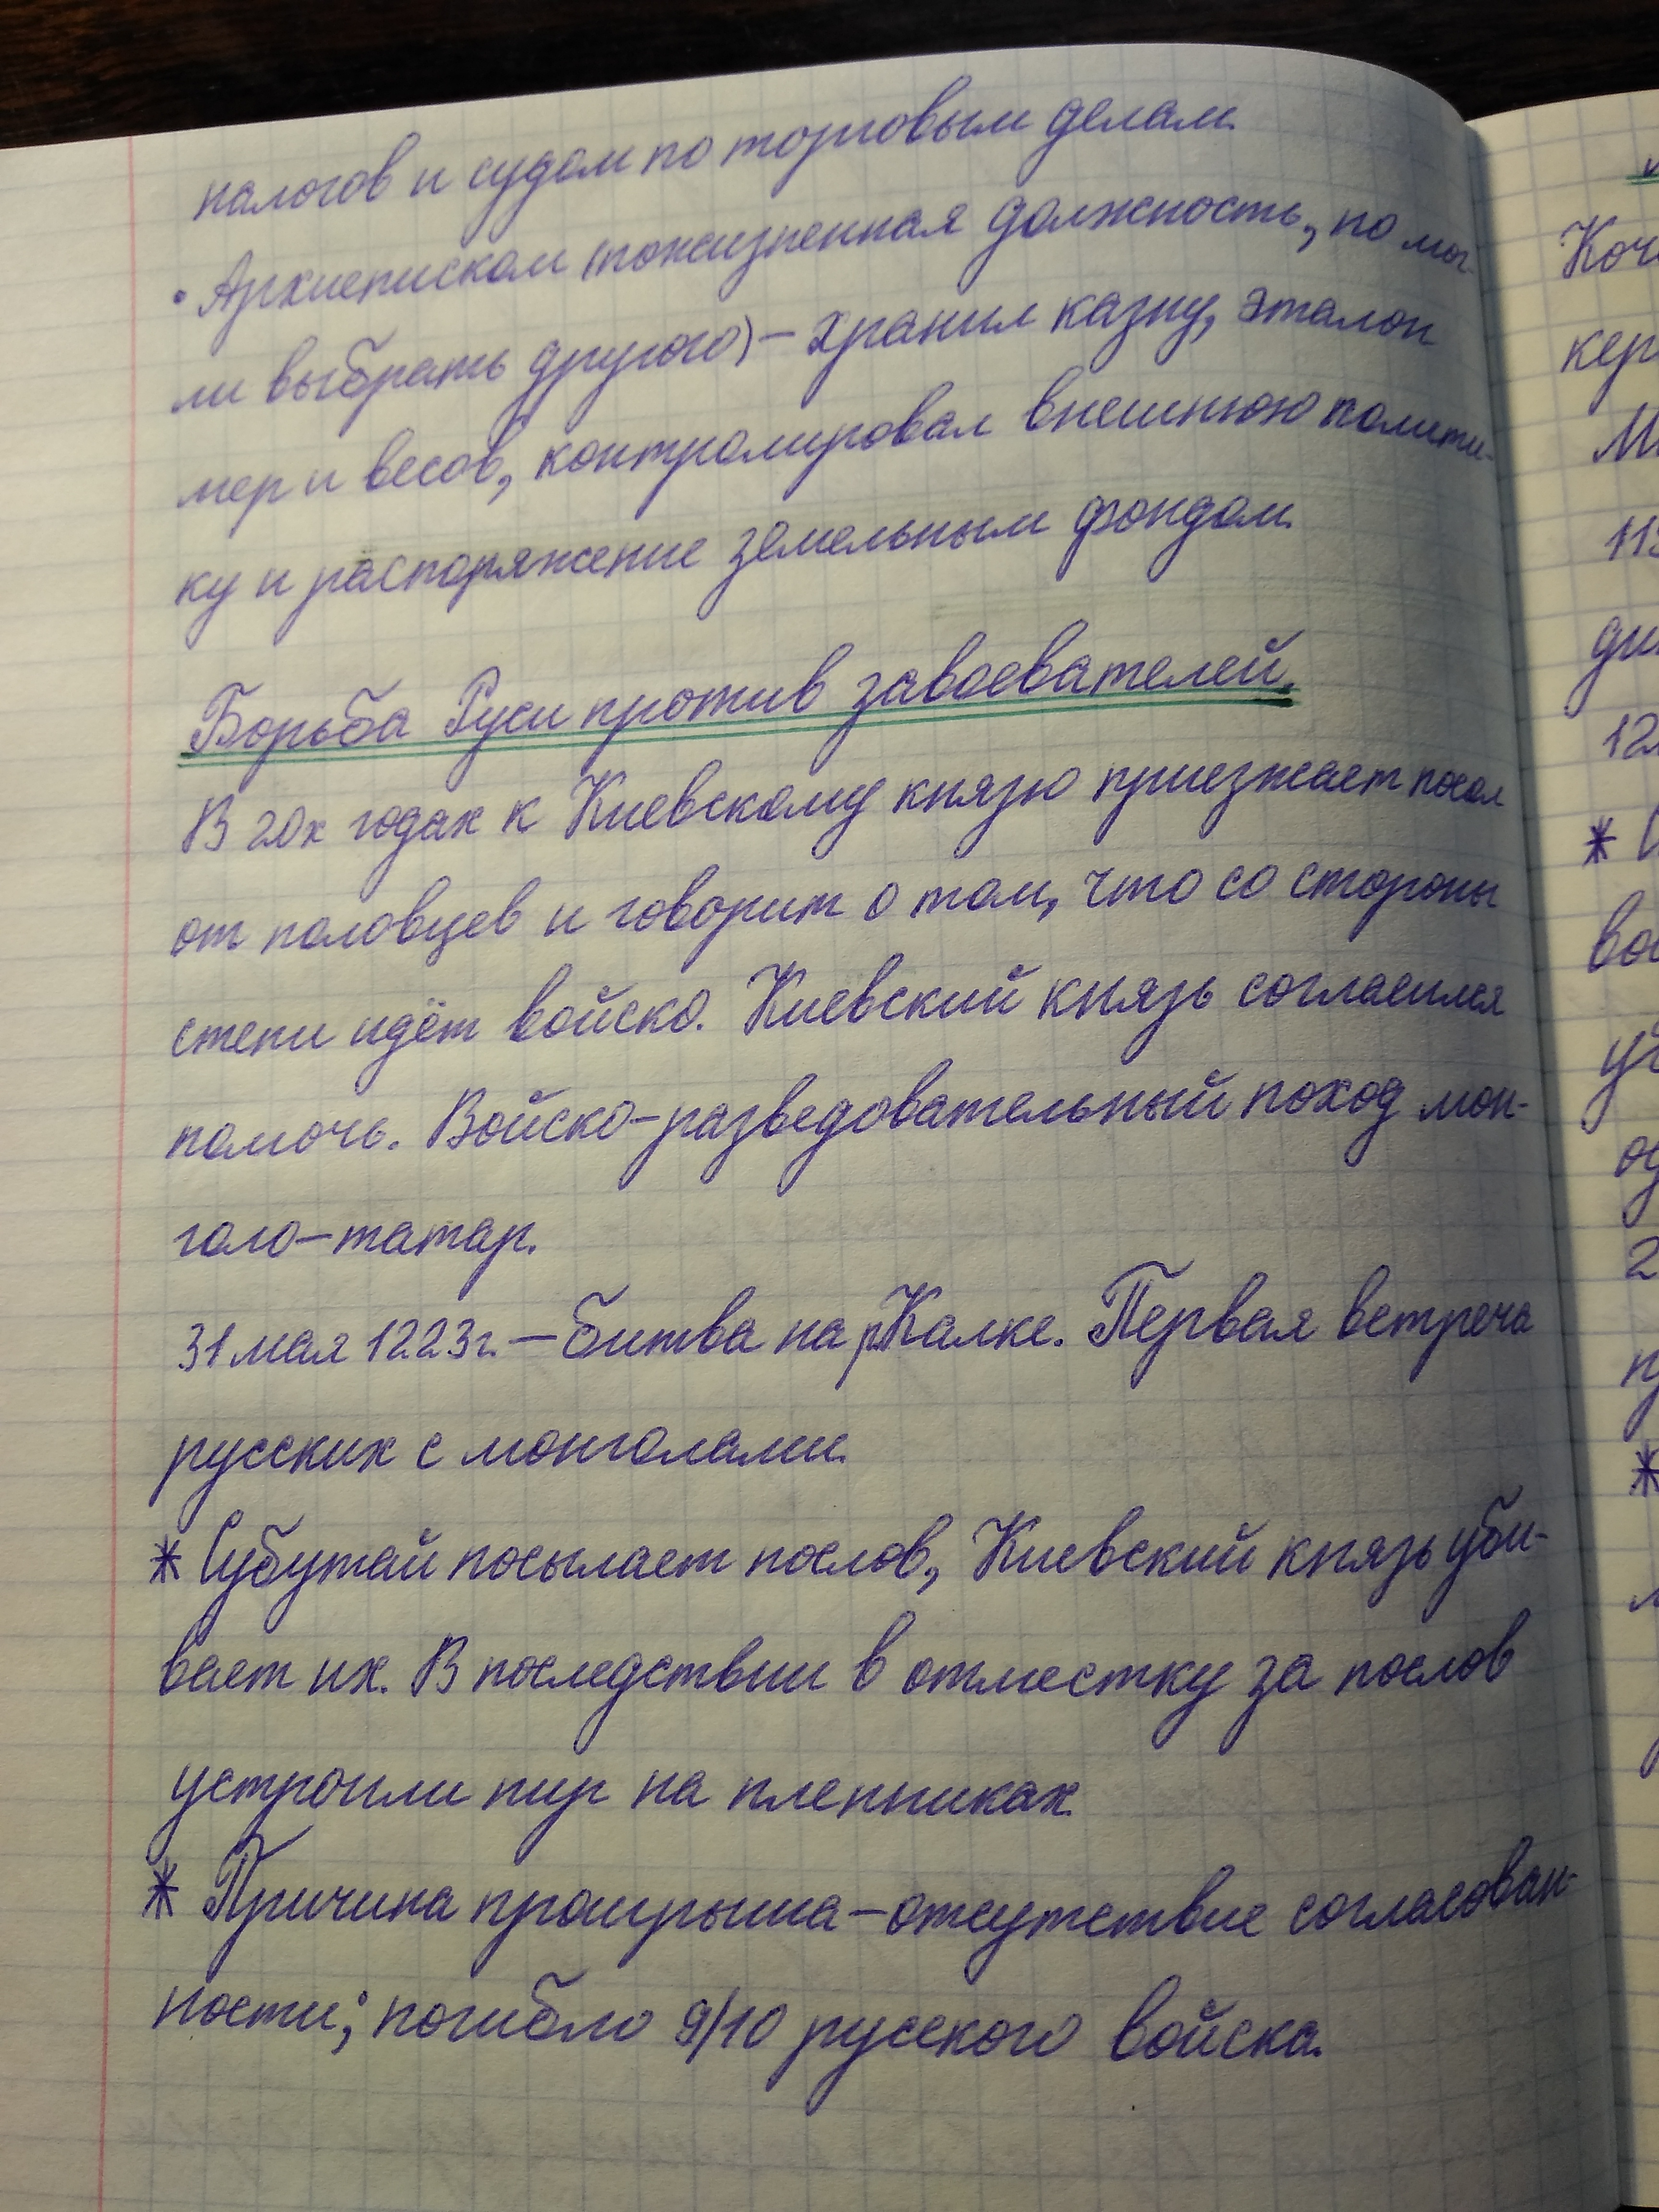 налогов и судом по торговым делам.
• Архиепископ (пожизненная должность, но мог-
ли выбрать другого) – хранил казну, эталон
мер и весов, контролировал внешнюю полити-
ку и распоряжение земельным фондом.
Борьба Руси против завоевателей.
В 20х годах к Киевскому князю приезжает посол
от половцев и говорит о том, что со стороны
степи идёт войско. Киевский князь согласился
помочь. Войско – разведовательный поход мон-
голо-татар.
31 мая 1223г. – битва на р.Калке. Первая встреча
русских с монголами.
* Субутай посылает послов, Киевский князь уби-
вает их. В последствии в отместку за послов
устроили пир на пленниках.
* Причина проигрыша – отсутствие согласован-
ности; погибло 9/10 русского войска.
Коч
кер
М
113
ди
12
*
во
уч
2
*